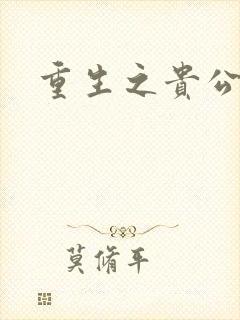 重生之貴公
莫脩平